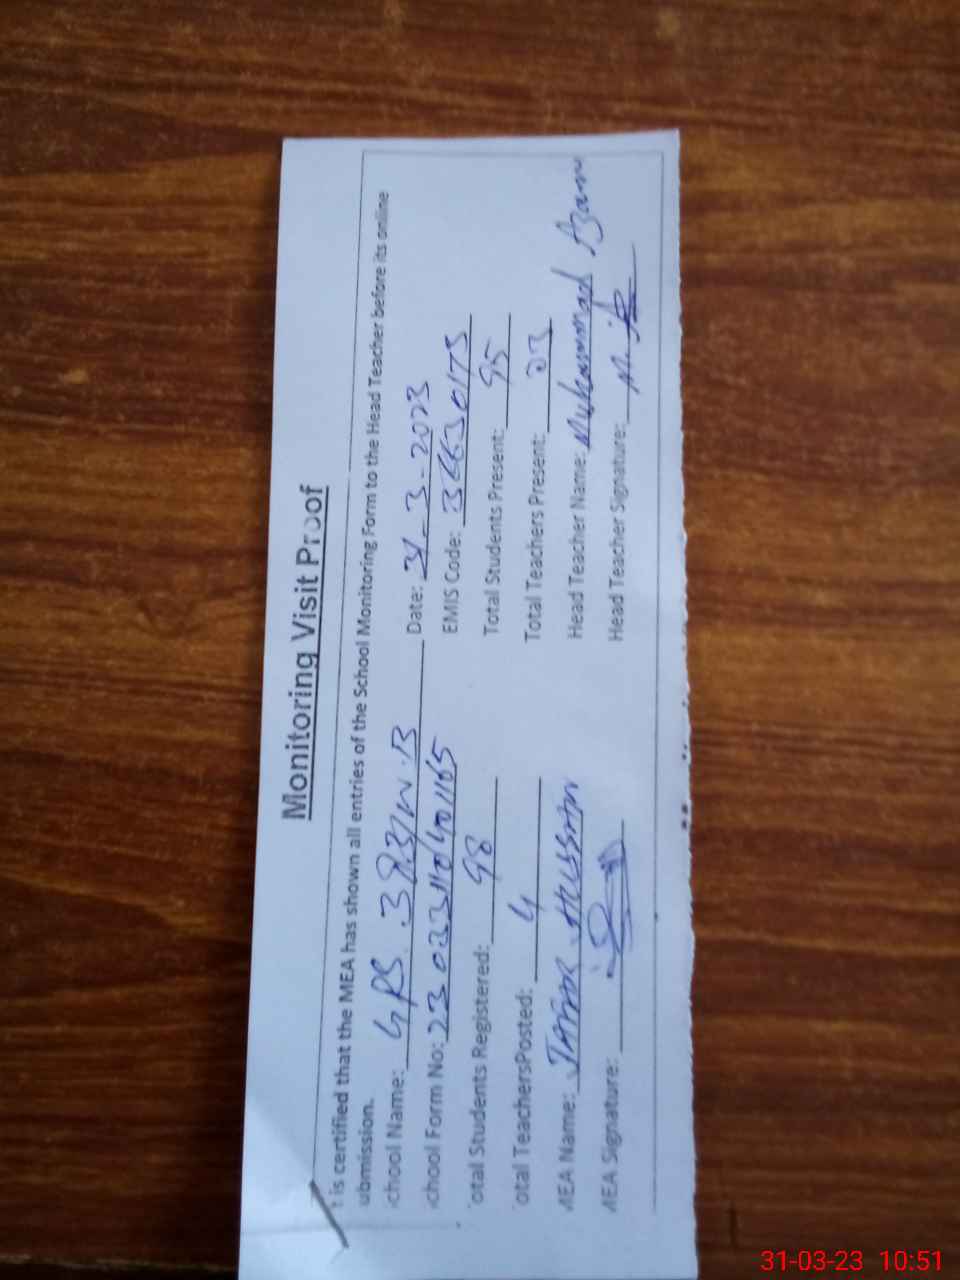 Monitoring Visit Proof
t is certified that the MEA has shown all entries of the School Monitoring Form to the Head Teacher before its online
ubmission.
chool Name: GPS 393/W.B Date: 31-3-2023
chool Form No: EMIS Code: 36630175
otal Students Registered: 98 Total Students Present: 95
otal TeachersPosted: 4 Total Teachers Present: 03
MEA Name: Hussain Head Teacher Name: Muhammad Azam
MEA Signature: Head Teacher Signature:
31-03-23 10:51